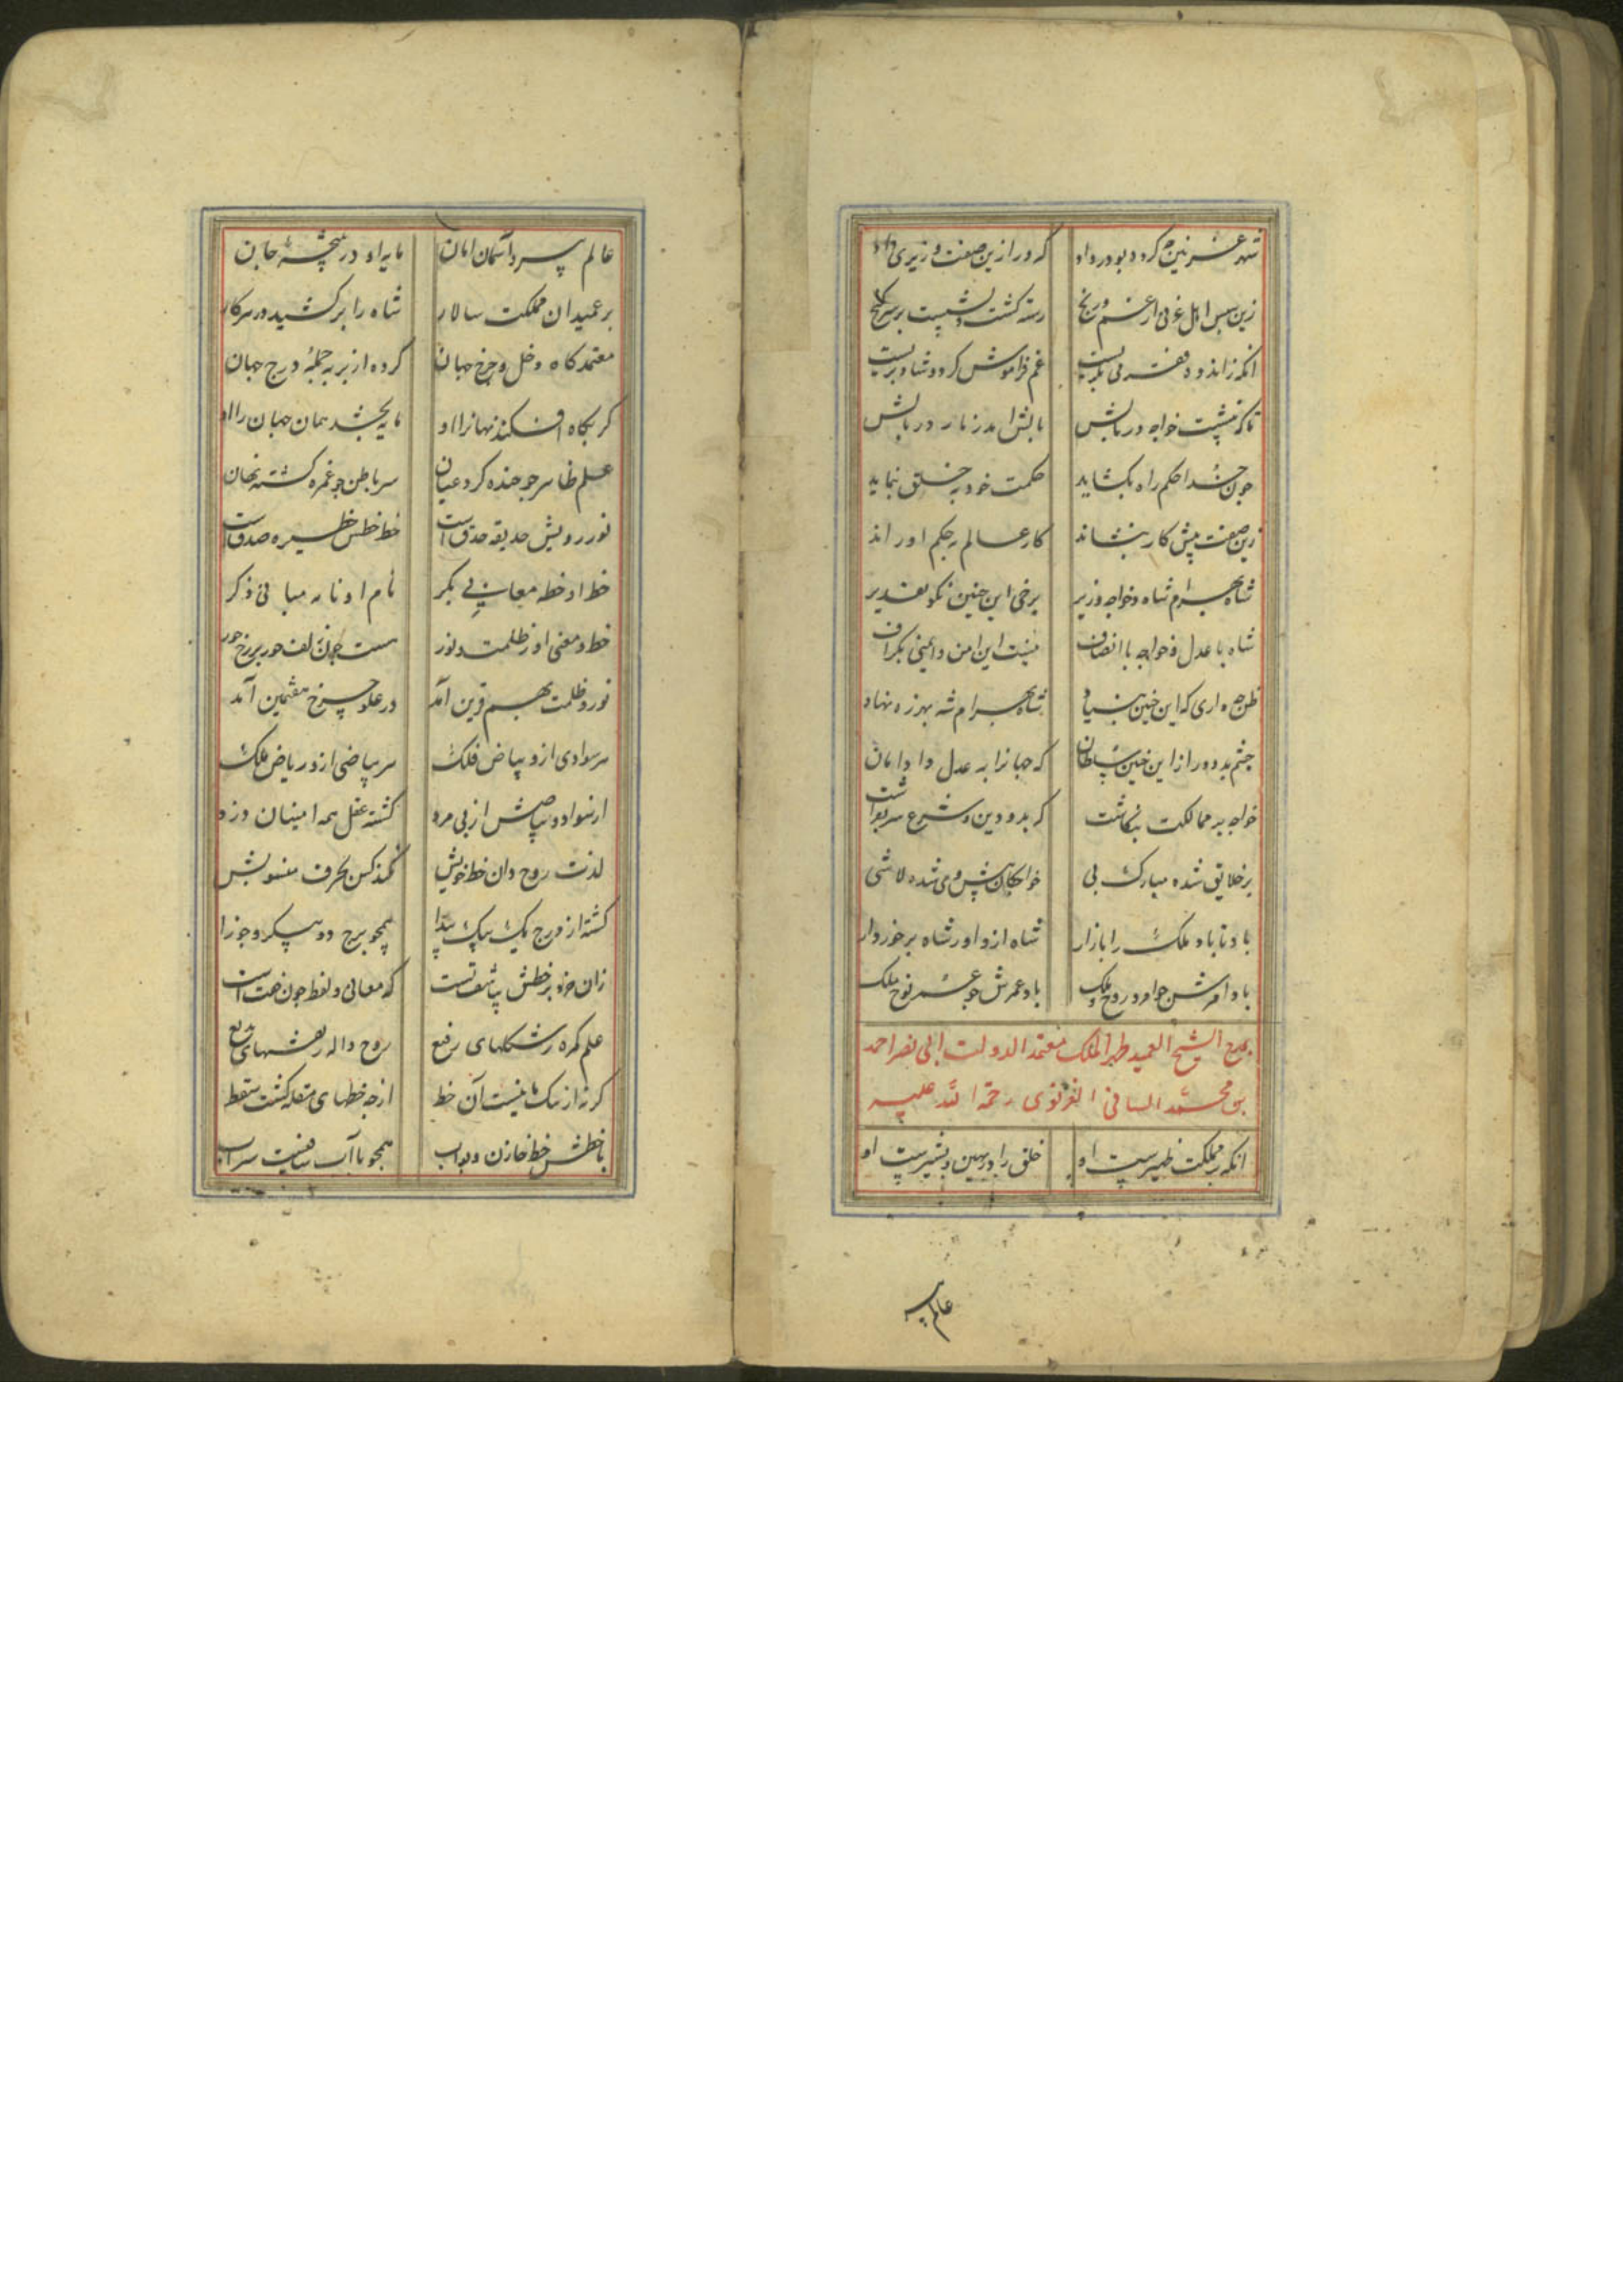 شهر غزنین چه کرد و بود و داد که ورا زین صفت وزیری داد
زین سپس اهل غزنی از غم و رنج رسته گشت و نشست بر سر گنج
انکه زاندوه دفتر می بگریست غم فراموش کرد و شاد بزیست
تا که بنشست خواجه در بالش در بالش
چون خدا حکم راه بگشاید حکمت خود به خلق بنماید
زین صفت پیش کار بنشاند کار عالم به حکم او راند
شاه بهرام شاه و خواجه وزیر برخی این چنین نکو تقدیر
شاه با عدل و خواجه با انصاف نیست این امن و ایمنی بگزاف
ظن چه داری که این چنین بنیاد شاه بهرام شه بهرزه نهاد
چشم بد دور از این چنین سلطان که جهانرا به عدل داد امان
خواجه بر ممالکت بگماشت که بدو دین و شرع سر بفراشت
بر خلایق شده مبارک پی خواجگان پیش وی شده لاشی
باد تا باد ملک را بازار شاه ازو او ز شاه برخوردار
باد امرش چو امر و روح و ملک باد عمرش چو عمر نوح ملک
بمدح الشیخ العمید ظهیر الملک معتمد الدولت ابی نصر احمد
بن محمد الغزنوی رحمة الله علیه
انکه بر مملکت ظهیرست او خلق را و بشیرست او
عالم پیر
عالم پیر و آسمان امان مایه او در چشمه جان
بر عمیدان مملکت سالار شاه را برکشید در سر کار
معتمد گاه دخل و خرج جهان کرده از بر به جمله درج جهان
گر بگاه افکند نهانرا او مایه بخشد همان جهان را او
علم ظاهر چو خنده کرد عیان سر باطن چو غمزه گشته نهان
نور رویش حدیقه حدق است خط خطش حظیره صدق است
خط او خطه معانی بکر نام او نامه مبانی ذکر
خط و معنی او ز ظلمت و نور هست چون زلف حور بر رخ حور
نور و ظلمت بهم قرین آمد در علو چرخ هفتمین آمد
هر سوادی ازو بیاض فلک هر بیاضی ازو ریاض ملک
از سواد و بیاضش از پی مرد گشته عقل همه امینان دزد
لذت روح دان خط خویش نکند کس بحرف منسوبش
گشته از درج یک بیک پیدا همچو برج دو پیکر و جوزا
زان خرد بر خطش بیاشفتست که معانی و لفظ چون جفت است
علم گمره ز شکلهای رفیع روح واله ز نقشهای بدیع
گر نه از نیست آن خط از چه خطهای مقله گشت سقط
با خطش خط خازن و بواب همچو با آب صافیست سراب